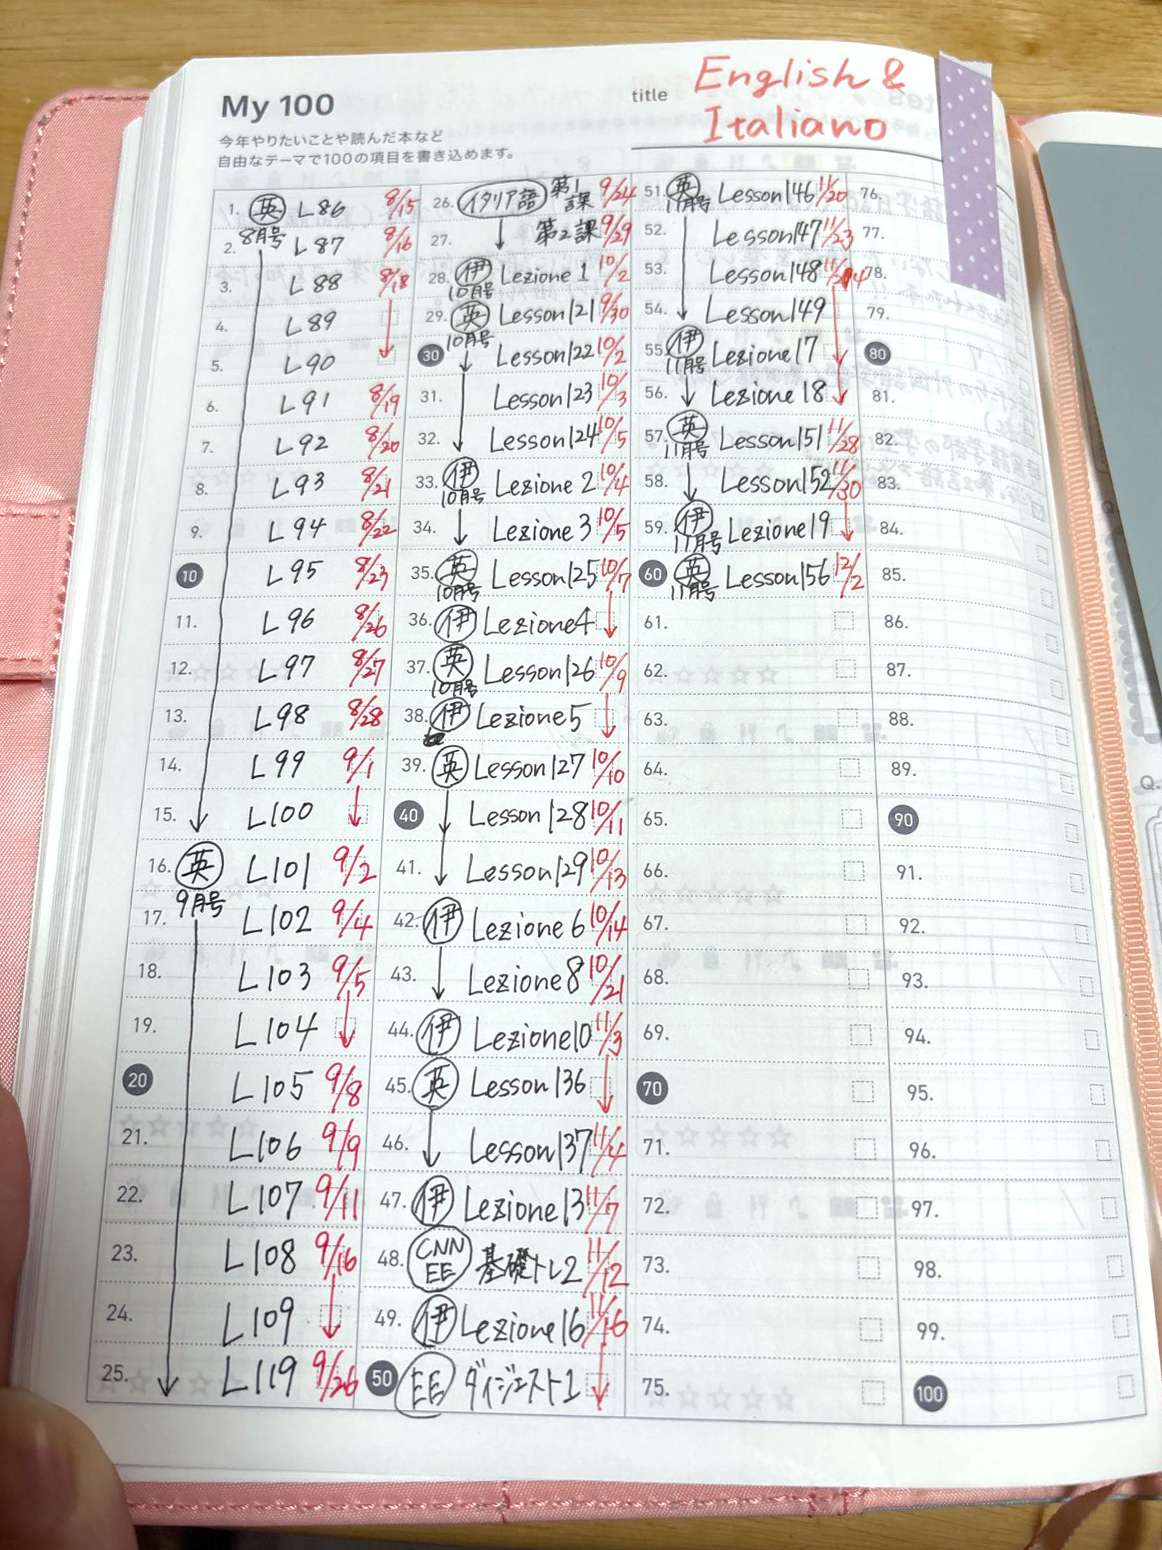 My 100
今年やりたいことや読んだ本など
自由なテーマで100の項目を書き込めます。
title English &
Italiano
1. 英 L86 8/15
8月号
2. L87 8/16
3. L88 8/18
4. L89
5. L90
6. L91 8/19
7. L92 8/20
8. L93 8/21
9. L94 8/22
10 L95 8/23
11. L96 8/26
12. L97 8/27
13. L98 8/28
14. L99 9/1
15. L100
16. 英 L101 9/2
9月号
17. L102 9/4
18. L103 9/5
19. L104
20 L105 9/8
21. L106 9/9
22. L107 9/11
23. L108 9/16
24. L109
25. L119 9/26
26. イタリア語 第1課 9/24
27. 第2課 9/29
28. 伊 Lezione 1 10/2
10月号
29. 英 Lesson121 9/30
10月号
30 Lesson122 10/2
31. Lesson123 10/3
32. Lesson124 10/5
33. 伊 Lezione 2 10/4
10月号
34. Lezione 3 10/5
35. 英 Lesson125 10/7
10月号
36. 伊 Lezione4
37. 英 Lesson126 10/9
10月号
38. 伊 Lezione5
39. 英 Lesson127 10/10
40 Lesson128 10/11
41. Lesson129 10/13
42. 伊 Lezione 6 10/14
43. Lezione8 10/21
44. 伊 Lezione10 11/3
45. 英 Lesson136
46. Lesson137 11/4
47. 伊 Lezione13 11/7
48. CNN EE 基礎トレ2 11/12
49. 伊 Lezione16 11/16
50 EE ダイジェスト1
51. 英 Lesson146 11/20
11月号
52. Lesson147 11/23
53. Lesson148
54. Lesson149
55. 伊 Lezione17
11月号
56. Lezione18
57. 英 Lesson151 11/28
11月号
58. Lesson152 11/30
59. 伊 Lezione19
11月号
60 英 Lesson156 12/2
11月号
61.
62.
63.
64.
65.
66.
67.
68.
69.
70
71.
72.
73.
74.
75.
76.
77.
78.
79.
80
81.
82.
83.
84.
85.
86.
87.
88.
89.
90
91.
92.
93.
94.
95.
96.
97.
98.
99.
100